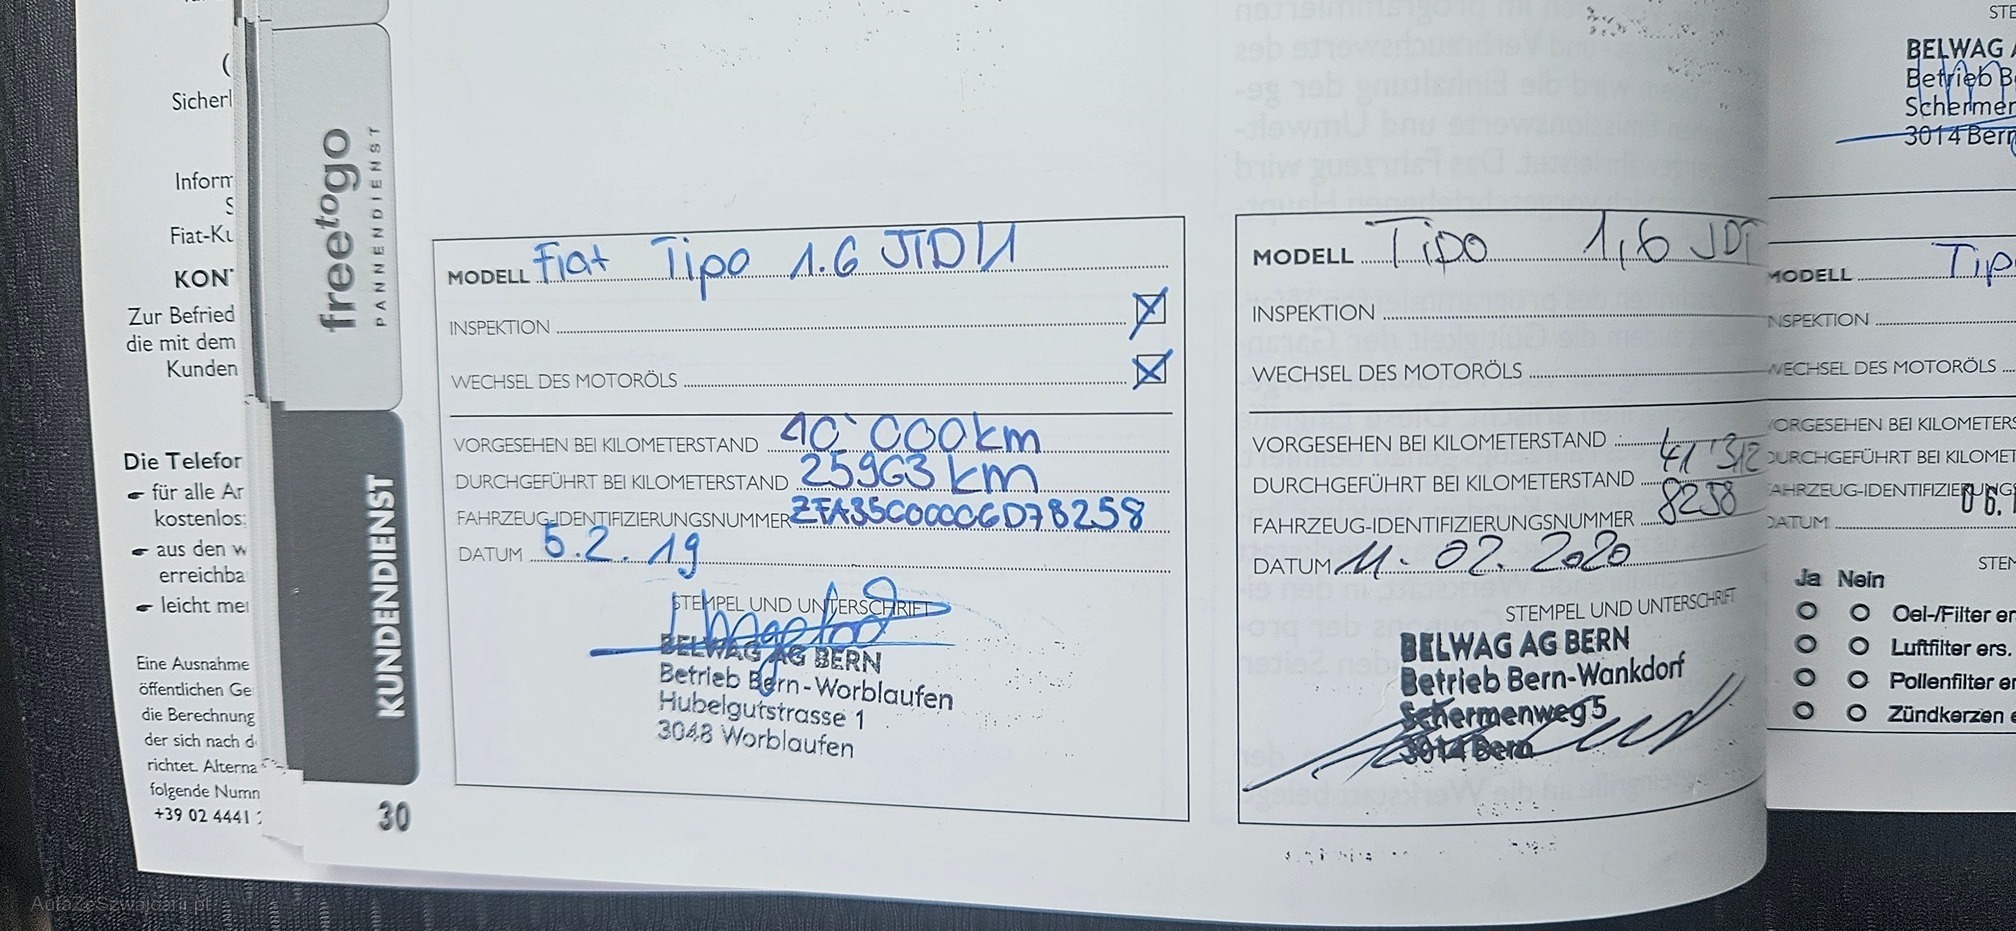 (
Sicherl
Inform
S
Fiat-Ku
KON
Zur Befried
die mit dem
Kunden
Die Telefor
für alle Ar
kostenlos:
aus den w
erreichba
leicht mer
Eine Ausnahme
öffentlichen Ge
die Berechnung
der sich nach d
richtet. Alterna
folgende Numn
+39 02 4441
freetogo
PANNENDIENST
KUNDENDIENST
30
MODELL Fiat Tipo 1.6 JTDM
INSPEKTION
WECHSEL DES MOTORÖLS
VORGESEHEN BEI KILOMETERSTAND 40'000km
DURCHGEFÜHRT BEI KILOMETERSTAND 25963 km
FAHRZEUG-IDENTIFIZIERUNGSNUMMER ZFA35600006D78258
DATUM 5.2.19
STEMPEL UND UNTERSCHRIFT
BELWAG AG BERN
Betrieb Bern-Worblaufen
Hubelgutstrasse 1
3048 Worblaufen
MODELL Tipo 1,6 JDT
INSPEKTION
WECHSEL DES MOTORÖLS
VORGESEHEN BEI KILOMETERSTAND
DURCHGEFÜHRT BEI KILOMETERSTAND 41'312
FAHRZEUG-IDENTIFIZIERUNGSNUMMER 8258
DATUM 11.02.2020
STEMPEL UND UNTERSCHRIFT
BELWAG AG BERN
Betrieb Bern-Wankdorf
Schermenweg 5
3014 Bern
STE
BELWAG A
Betrieb Be
Schermer
3014 Bern
MODELL Tip
NSPEKTION
WECHSEL DES MOTORÖLS
VORGESEHEN BEI KILOMETERS
DURCHGEFÜHRT BEI KILOMET
FAHRZEUG-IDENTIFIZIERUNGS
DATUM 06.
STEM
Ja Nein
Oel-/Filter er
Luftfilter ers.
Pollenfilter er
Zündkerzen e
AutoZeSzwajcarii.pl